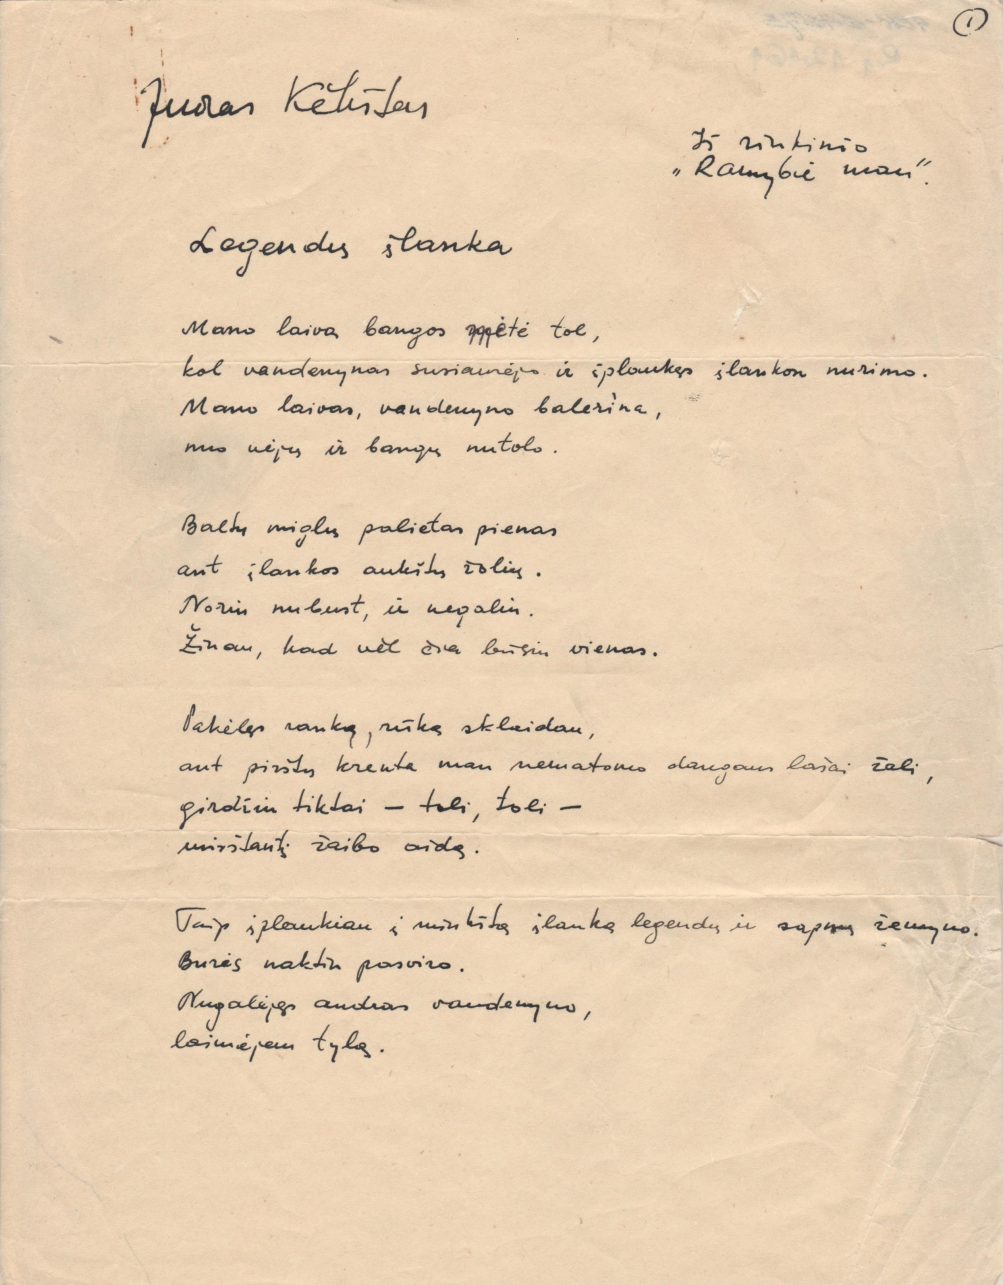 1
Juozas Kėkštas
Iš rinkinio
„Ramybė man".
Legendų įlanka
Mano laivą bangos mėtė tol,
kol vandenynas susiaurėjo ir įplaukęs įlankon nurimo.
Mano laivas, vandenyno balerina,
nuo vėjų ir bangų nutolo.
Baltų miglų palietas pienas
ant įlankos aukštų žolių.
Noriu nubust, ir negaliu.
Žinau, kad vėl čia būsiu vienas.
Pakėlęs ranką, rūką sklaidau,
ant pirštų krenta man nematomo dangaus lašai žali,
girdžiu tiktai — toli, toli —
mirštantį žaibo aidą.
Taip įplaukiau į minkštą įlanką legendų ir sapnų žemyno.
Burės naktin pasviro.
Nugalėjęs audras vandenyno,
laimėjau tylą.